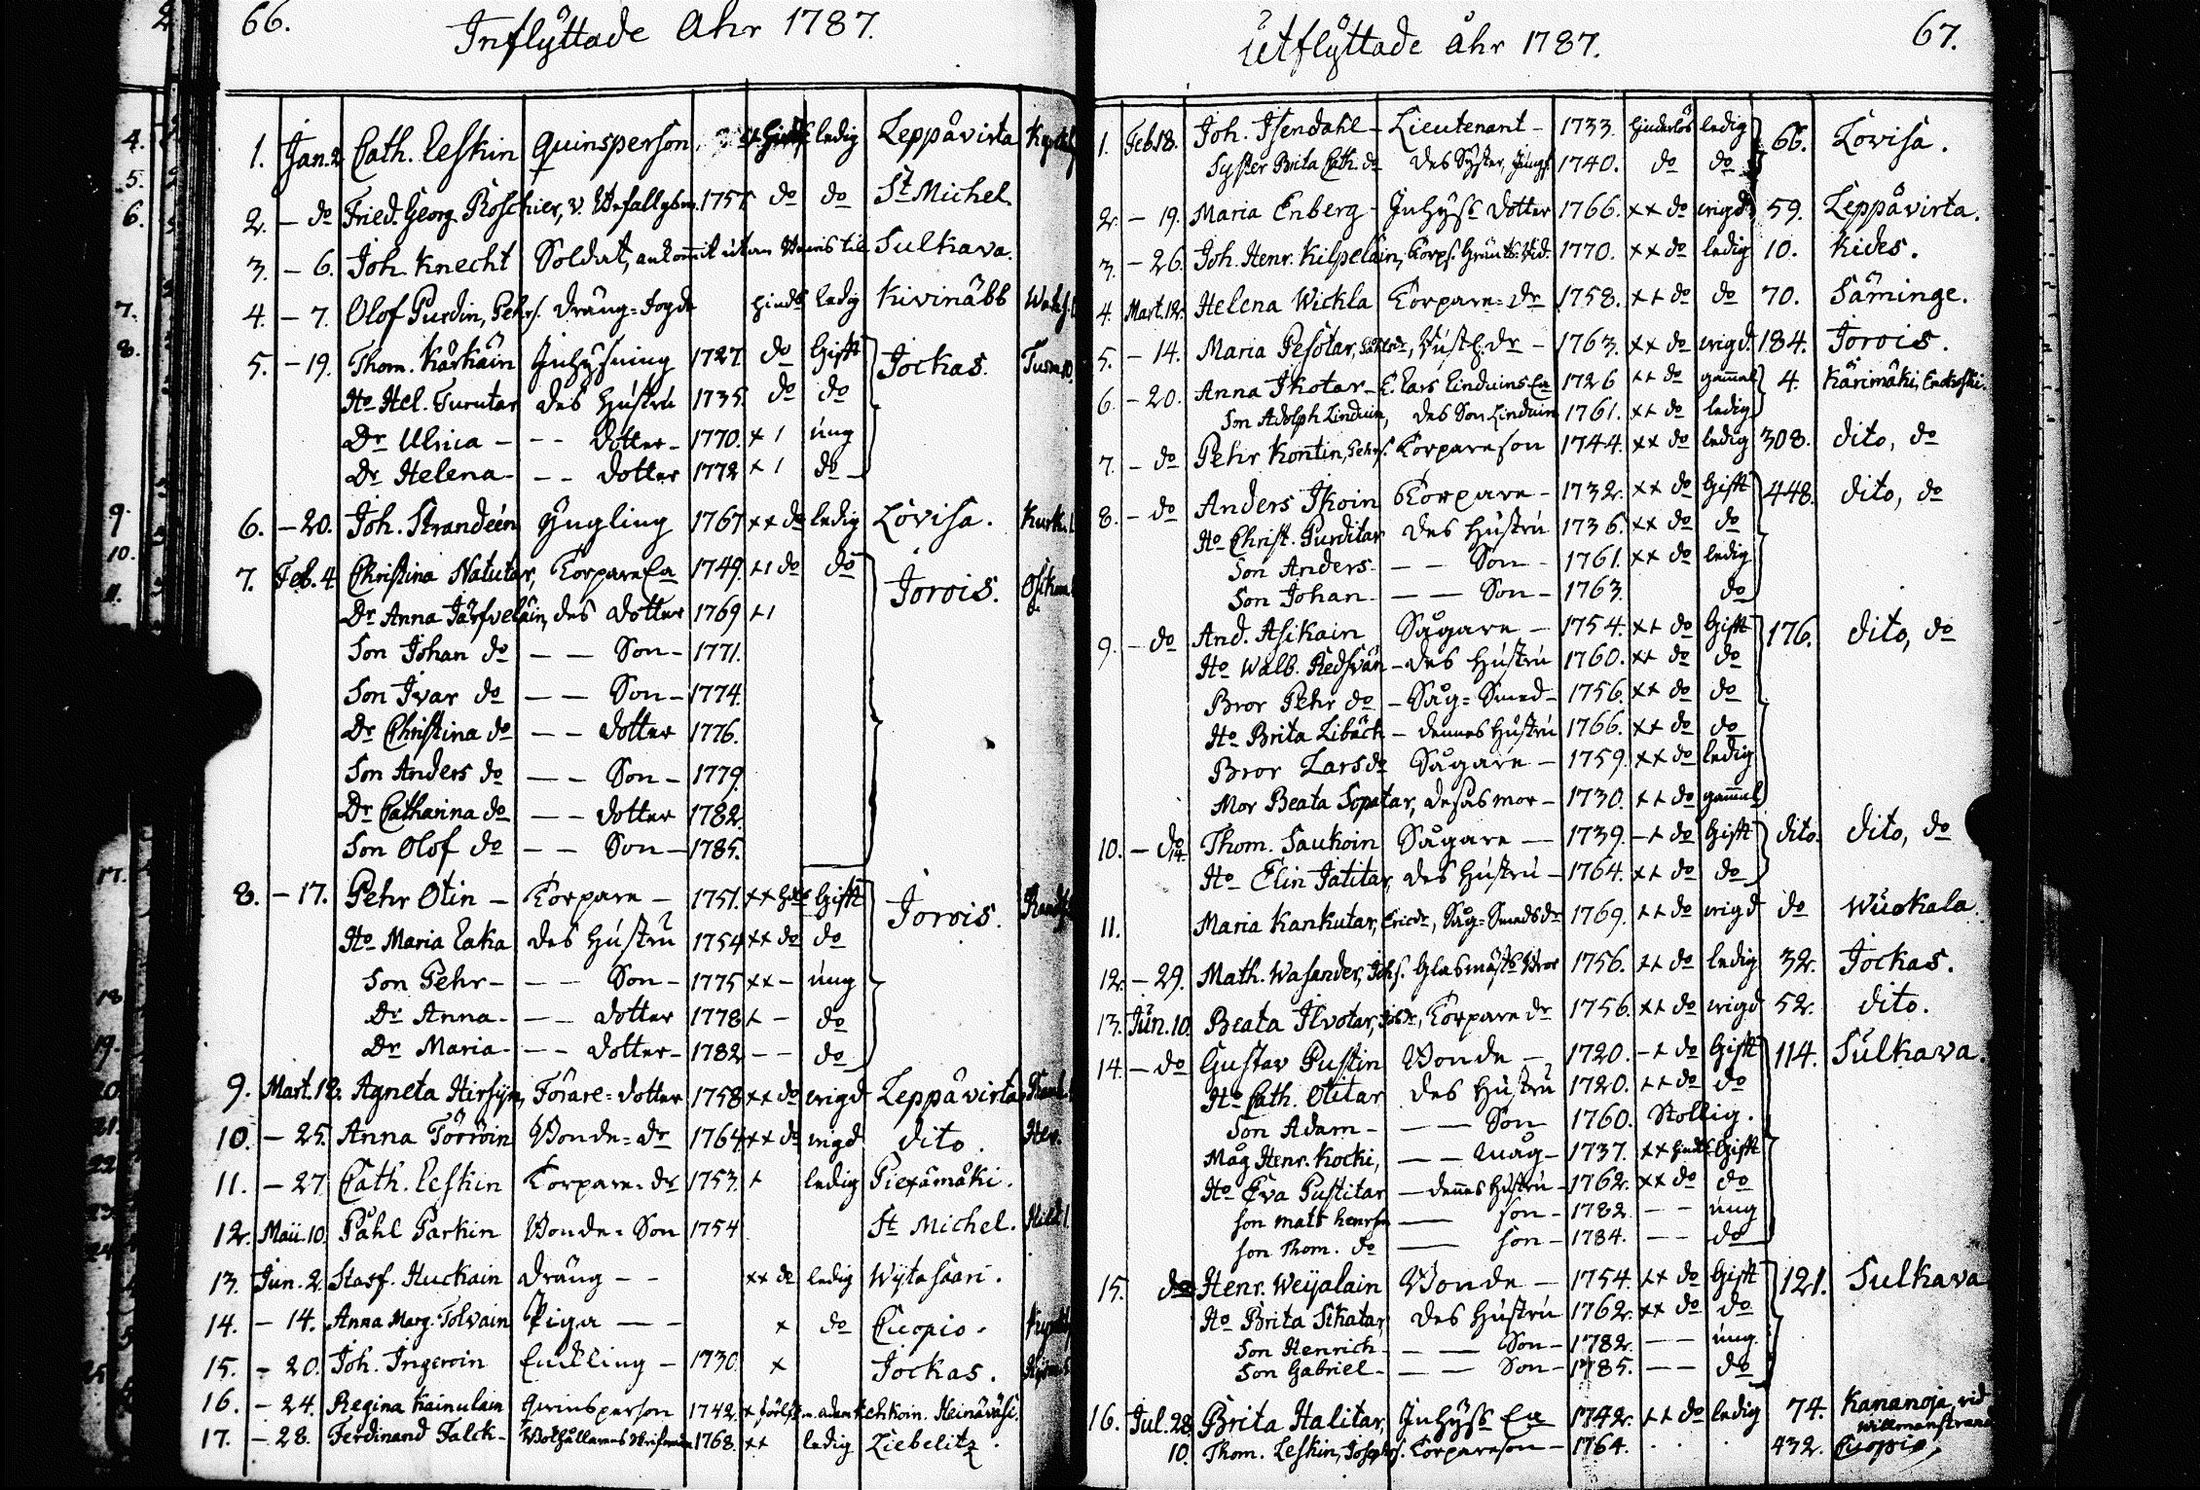 66.
Inflyttade Åhr 1787.
1. Jan. 2. Cath. Leskin Quinsperson ledig Leppävirta
2. – do Fried. Georg Roschier, v. 1757 do do St Michel
3. – 6. Joh. Knecht Soldat, Sulkava.
4. – 7. Olof Purdin, Pehrs. Dräng=fogde ledig Kivinäbb
5. – 19. Thom. Kärkäin Inhysning 1727 do Gifft Jockas.
Ho Hel. Turutar des Hustru 1735. do do
Dr Ulrica – – – dotter – 1770. x 1 ung
Dr Helena – – – dotter 1772 + 1 do
6. – 20. Joh. Strandeén Yngling 1767 xx do ledig Lovisa.
7. Feb. 4. Christina Natutar, Torpare Ea 1749. +1 do do Jorois.
Dr Anna Järfveläin, des dotter 1769 +1
Son Johan do – – Son – 1771.
Son Ivar do – – Son – 1774.
Dr Christina do – – dotter 1776.
Son Anders do – – Son – 1779.
Dr Catharina do – – dotter 1782.
Son Olof do – – Son – 1785.
8. – 17. Pehr Otin – Torpare – 1751. xx Gifft Jorois.
Ho Maria Laka des Hustru 1754 xx do do
Son Pehr – – – Son – 1775 xx – ung
Dr Anna – – – dotter 1778 + – do
Dr Maria – – – dotter – 1782 – – do
9. Mart. 18. Agneta Hirsyn, Förare=dotter 1758 xx do wigd Leppävirta
10. – 25. Anna Törröin Bonde=dr 1764 xx do wigd dito.
11. – 27 Cath. Leskin Torpare=dr 1753. + ledig Piexämäki.
12. Maii. 10. Påhl Parkin Bonde=Son 1754 St Michel.
13. Jun. 2. Staf. Huckain dräng – – xx do ledig Wijtasaari.
14. – 14. Anna Marg. Tolvain Piga – – x do Cuopio.
15. – 20. Joh. Ingeroin Enckling – 1730. x Jockas.
16. – 24. Regina Kainulain Quinsperson 1742. x Heinävesi.
17. – 28. Ferdinand Falck – 1768. xx ledig Liebelitz.
Utflyttade åhr 1787.
67.
1. Feb. 18. Joh. Isendahl – Lieutenant – 1733. hinderlös ledig 66. Lovisa.
Syster Brita Cath. do des Syster, 1740. do do
2. – 19. Maria Enberg – Inhyse dotter 1766. xx do wigd 59. Leppävirta.
3. – 26. Joh. Henr. Kilpeläin, 1770. xx do ledig 10. Kides.
4. Mart. 12. Helena Wickla Torpare=dr 1758. ++ do do 70. Säminge.
5. – 14. Maria Pesotar, – 1763. xx do wigd. 184. Jorois.
6. – 20. Anna Ikotar – E. Lars Linduins Ea 1726 ++ do gammal 4. Kärimäki,
Son Adolph Linduin, des Son Linduin 1761. x+ do ledig
7. – do Pehr Kontin, Pehrs. Torpareson 1744. xx do ledig 308. dito, do
8. – do Anders Ikoin Torpare – 1732. xx do Gifft 448. dito, do
Ho Christ. Purditar des Hustru 1736. xx do do
Son Anders – – – Son – 1761. xx do ledig
Son Johan – – – Son – 1763. do
9. – do And. Asikain Sågare – 1754. x+ do Gifft 176. dito, do
Ho Walb. Redsvän – des Hustru 1760. x+ do do
Bror Pehr do – Såg=Smed – 1756. xx do do
Ho Brita Libäck – dennes Hustru 1766. xx do do
Bror Lars do Sågare – 1759. xx do ledig
Mor Beata Sopatar, desas mor – 1730. ++ do gammal
10. – do 14. Thom. Saukoin Sågare – 1739. –+ do Gifft dito. dito, do
Ho Elin Tatitar, des Hustru – 1764. x+ do do
11. Maria Kankutar, Såg=Smedsdr 1769. ++ do wigd do Wuokala.
12. – 29. Math. Wasander, Johs. Glasmäst. Bror 1756. ++ do ledig 32. Jockas.
13. Jun. 10. Beata Ilvotar, Torpare dr 1756. xx do wigd 52. dito.
14. – do Gustav Pustin Bonde – 1720. –+ do Gifft 114. Sulkava.
Ho Cath. Otitar des Hustru 1720. ++ do do
Son Adam – – – Son 1760. Stollig.
Måg Henr. Kocki, – – Måg – 1737. xx Gifft
Ho Eva Pustitar – dennes Hustru – 1762. xx do do
Son Matts Henrsn – son – 1782. – – ung
Son Thom. do – son – 1784. – – do
15. do Henr. Weijalain Bonde – 1754. ++ do Gifft 121. Sulkava
Ho Brita Sikatar, des Hustru 1762. xx do do
Son Henrich – – – Son – 1782. – – ung
Son Gabriel – – – Son – 1785. – – do
16. Jul. 28. Brita Halitar, Inhyss Ea 1742. ++ do ledig 74. Kananoja, vid Willmanstrand
10. Thom. Leskin, Josephs. Torpareson – 1764. 432. Cuopio,